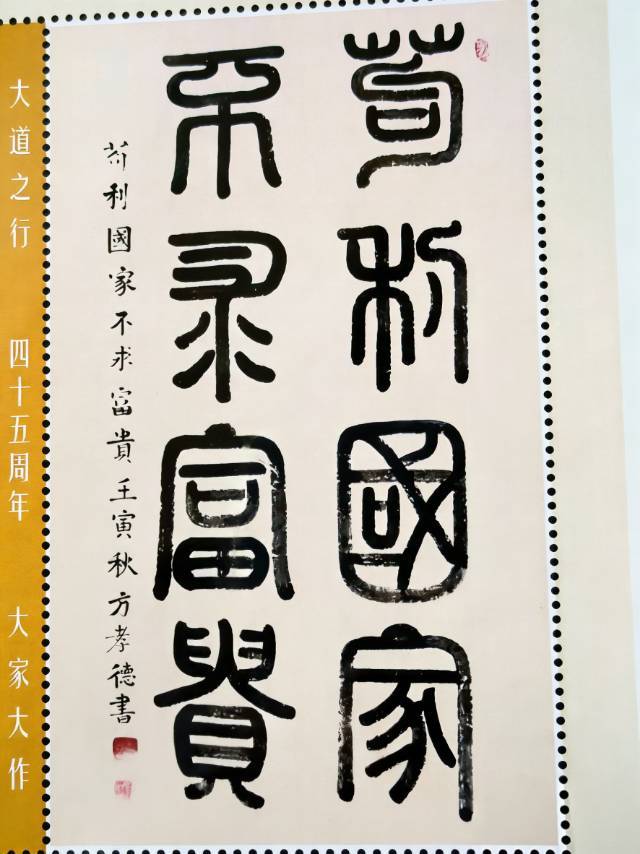 苟利國家
不求富貴
苟利國家不求富貴壬寅秋方孝德書
大道之行 四十五周年 大家大作